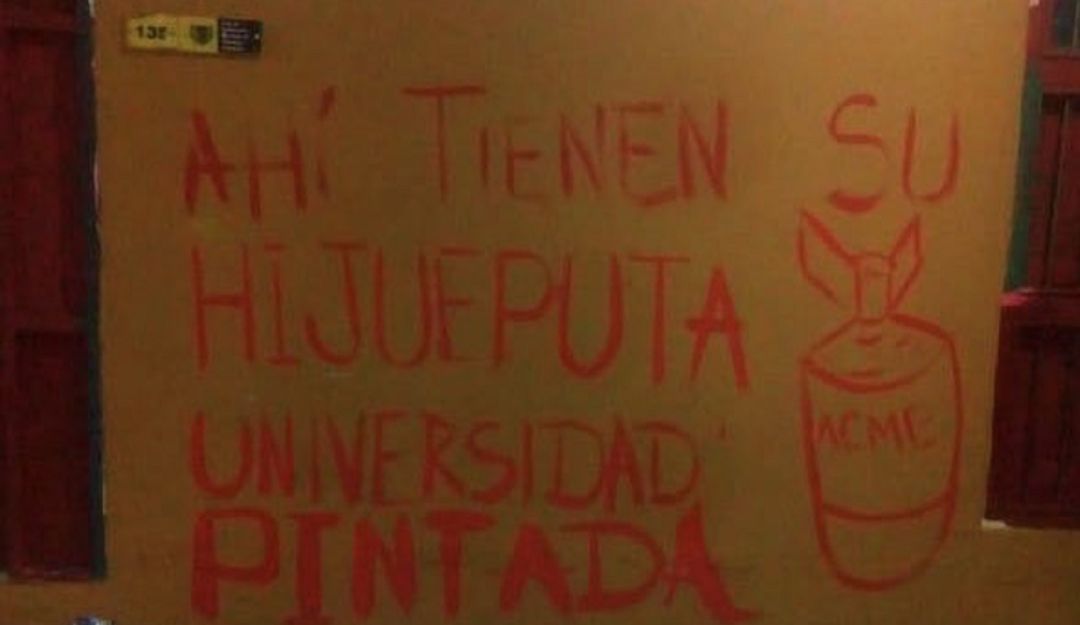 135
AHÍ TIENEN SU
HIJUEPUTA
UNIVERSIDAD
PINTADA
ACME